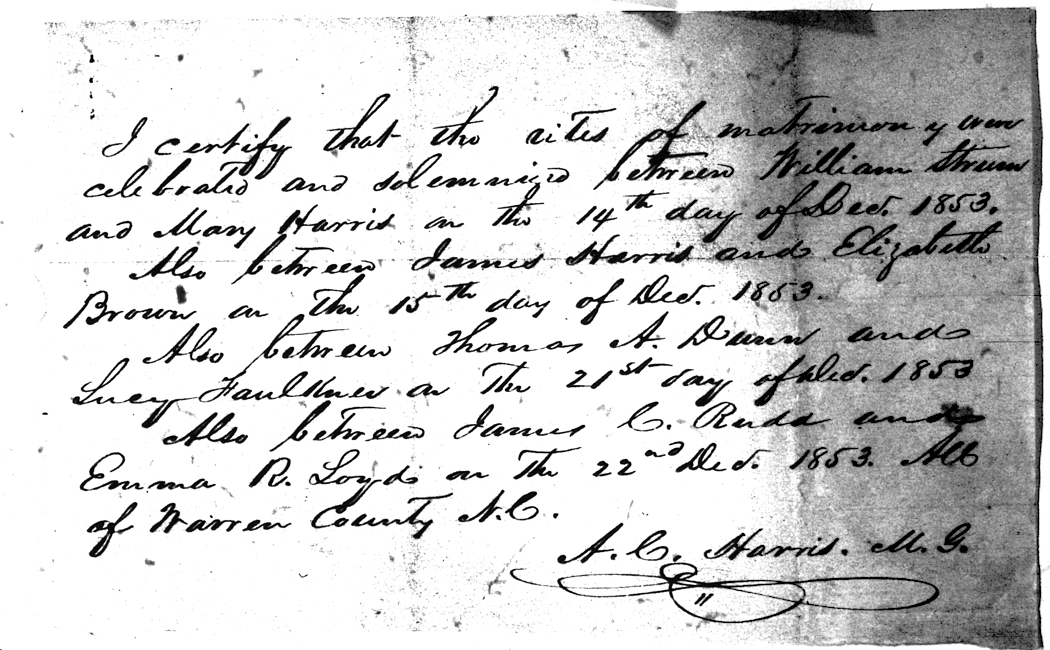 I certify that the rites of matrimony were
celebrated and solemnized between William Strum
and Mary Harris on the 14th day of Dec. 1853.
Also between James Harris and Elizabeth
Brown on the 15th day of Dec. 1853.
Also between Thomas A. Dunn and
Lucy Faulkner on the 21st day of Dec. 1853
Also between James C. Rudd and
Emma R. Loyd on the 22nd Dec. 1853. All
of Warren County N.C.
A. C. Harris. M. G.